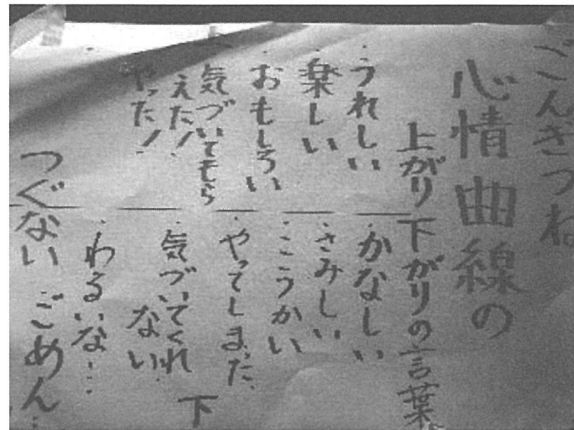 ごんぎつね
心情曲線の
上がり下がりの言葉
・うれしい
・楽しい
・おもしろい
・気づいてもら
えた!
・やった!
・かなしい
・さみしい
・こうかい
・やってしまった
・気づいてくれ
ない
・わるいな…
つぐない ごめん…
下